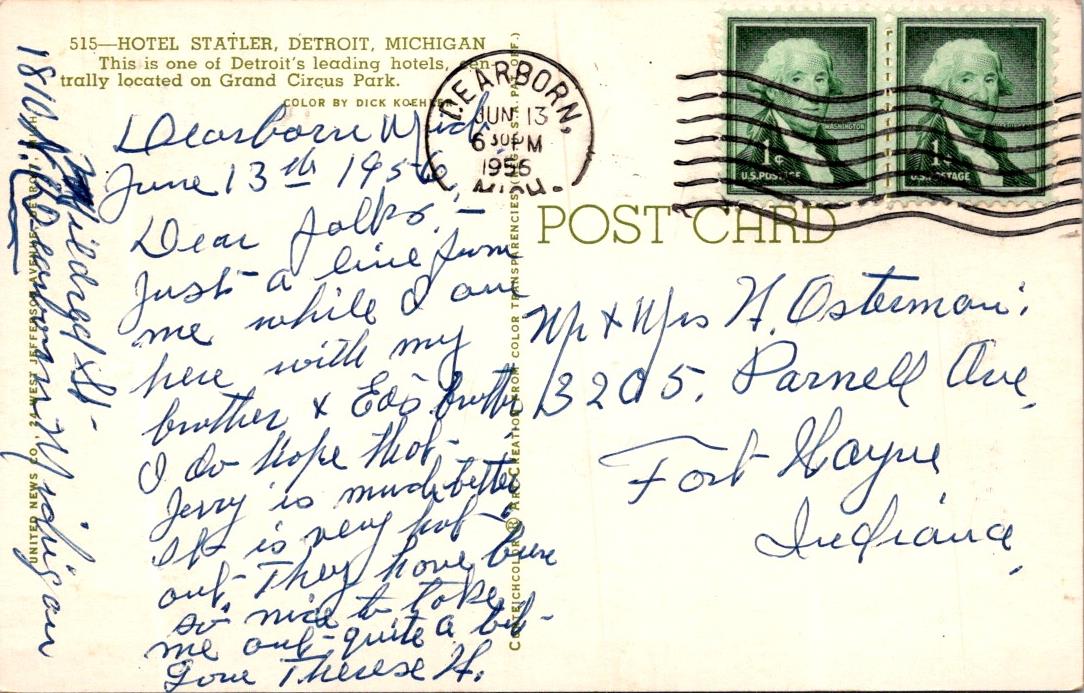 515—HOTEL STATLER, DETROIT, MICHIGAN
This is one of Detroit's leading hotels, cen-
trally located on Grand Circus Park.
COLOR BY DICK KOEHLER
Dearborn Mich
June 13th 1956
Dear folks, —
Just a line from
me while I am
here with my
brother & Ed's brother
I do hope that
Jerry is much better
It is very hot
out. They have been
so nice to take
me out quite a bit-
Love Therese H.
Mildred St-
Dearborn Michigan
UNITED NEWS CO., WEST JEFFERSON AVENUE, DETROIT,
CURTEICHCOLOR ® ART CREATION FROM COLOR TRANSPARENCIES
PAT. OFF.)
DEARBORN,
JUN 13
6 30 PM
1956
MICH.
WASHINGTON
1¢
U.S. POSTAGE
1¢
U.S. POSTAGE
POST CARD
Mr & Mrs H. Osterman.
3205. Parnell Ave,
Fort Wayne
Indiana,